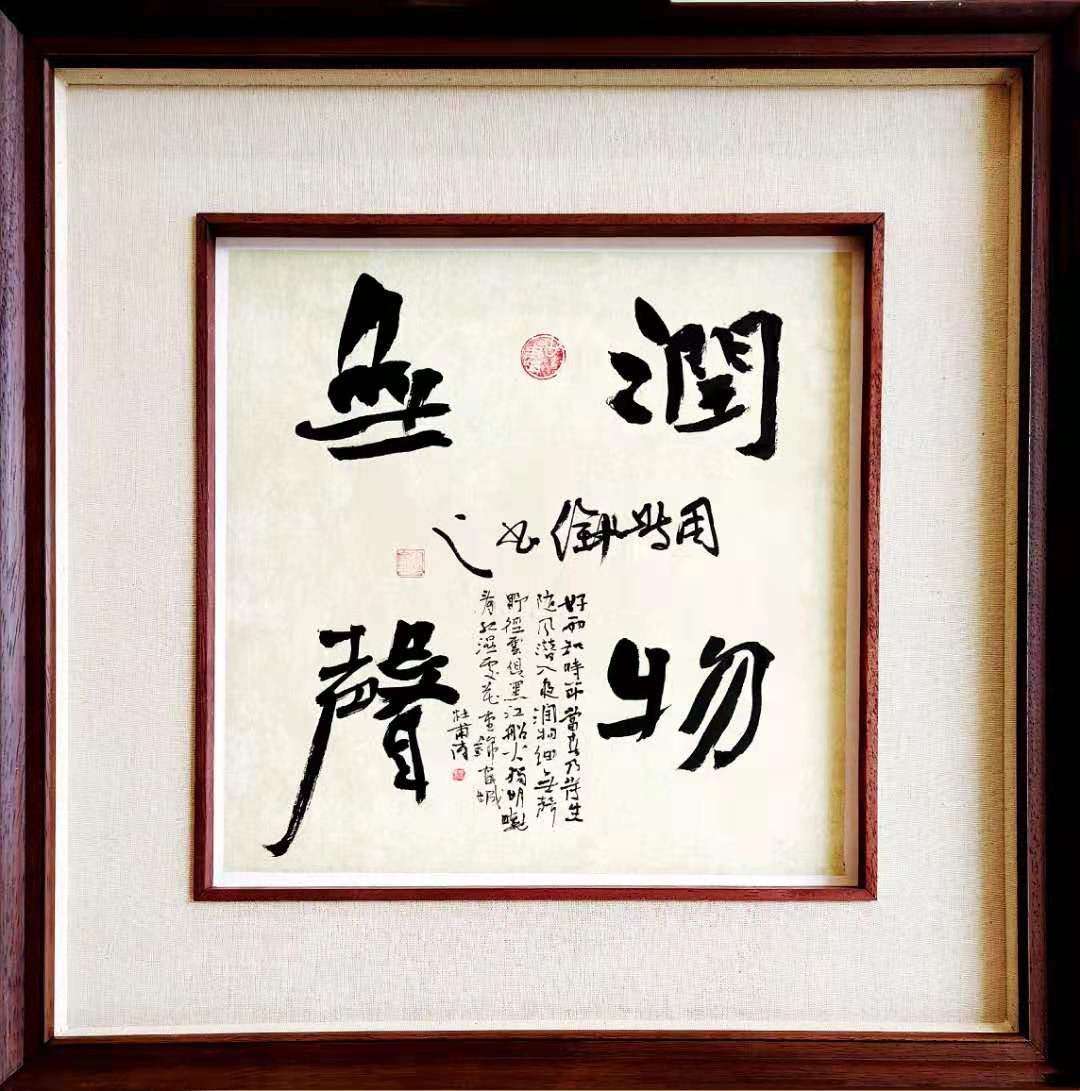 潤物
無聲
好雨知時節當春乃發生
隨風潛入夜潤物細無聲
野徑雲俱黑江船火獨明曉
看紅濕處花重錦官城
杜甫詩